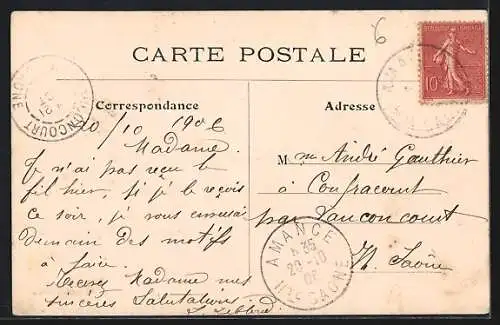 6
CARTE POSTALE
Correspondance
Adresse
20/10 1906
Madame
Je n'ai pas reçu le
fil hier, si je le reçois
ce soir, je vous enverrai
demain des motifs
à faire.
Recevez Madame mes
sincères Salutations
Mme André Gauthier
à Confracourt
par Vauconcourt
Hte Saône
AMANCE
4 35
20-10
06
Hte SAONE
10c